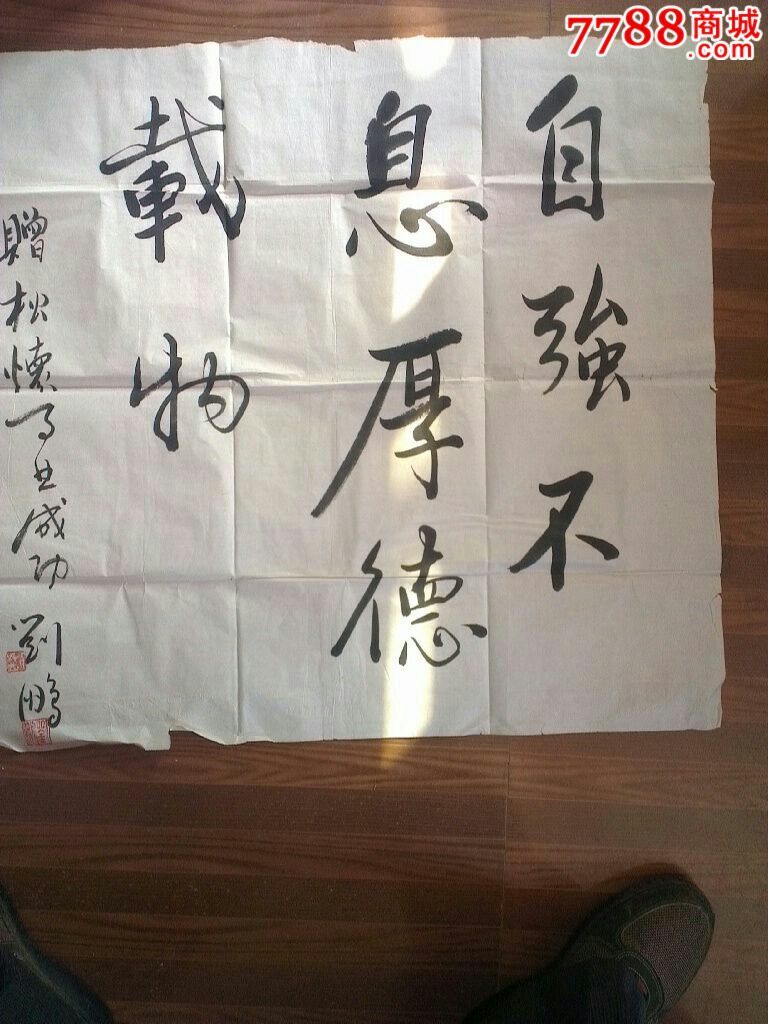 7788商城
.com
自強不
息厚德
載物
贈松懷事业成功
劉鵬